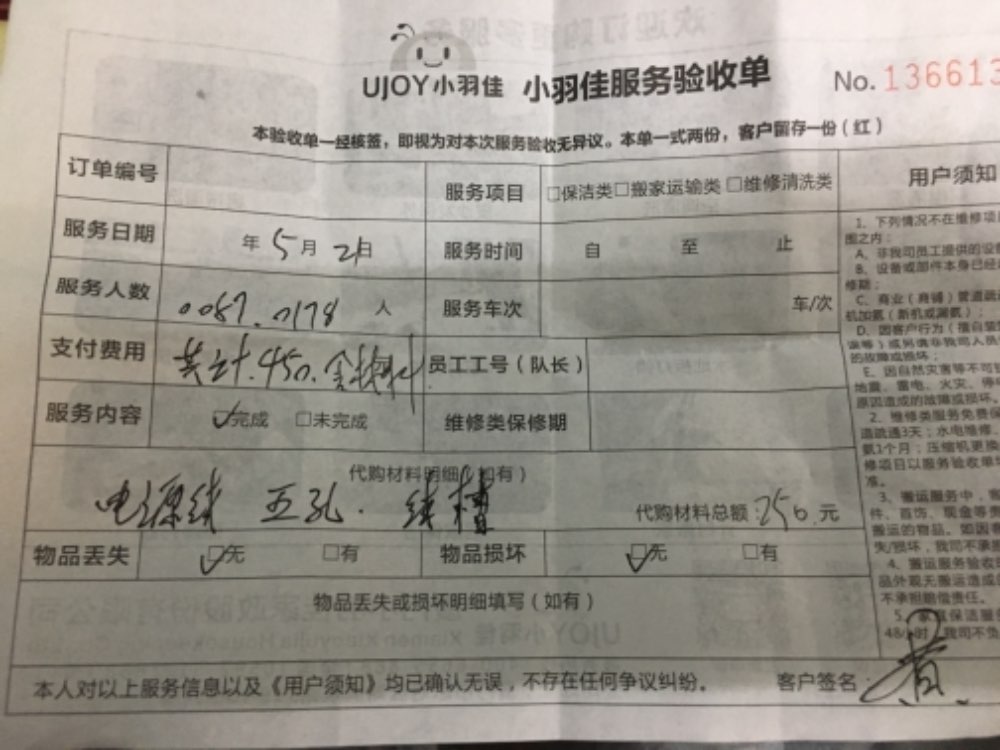 UJOY小羽佳 小羽佳服务验收单 No.136613
本验收单一经核签，即视为对本次服务验收无异议。本单一式两份，客户留存一份（红）
订单编号 服务项目 □保洁类□搬家运输类□维修清洗类
服务日期 年5月21日 服务时间 自 至 止
服务人数 0087.0178 人 服务车次 车/次
支付费用 共计.450.含材料 员工工号（队长）
服务内容 ☑完成 □未完成 维修类保修期
代购材料明细（如有）
电源线 五孔. 线槽 代购材料总额:250元
物品丢失 ☑无 □有 物品损坏 ☑无 □有
物品丢失或损坏明细填写（如有）
本人对以上服务信息以及《用户须知》均已确认无误，不存在任何争议纠纷。 客户签名:
用户须知
1、下列情况不在维修项
围之内：
A、非我司员工提供的设
B、设备或部件本身已经
修期；
C、商业（商铺）管道疏
机加氨（新机或漏氨）；
D、因客户行为（擅自
误等）或另请非我司人员
的故障或损坏；
E、因自然灾害等不可
地震、雷电、火灾、停
原因造成的故障或损坏。
2、维修类服务免费保
道疏通3天；水电维修，
氨1个月；压缩机更换
修项目以服务验收单
准。
3、搬运服务中，
件、首饰、现金等贵
搬运的物品。如因
失/损坏，我司不承
4、搬运服务验收
品外观无搬运造成
不承担赔偿责任。
5、家庭保洁服
48小时，我司不